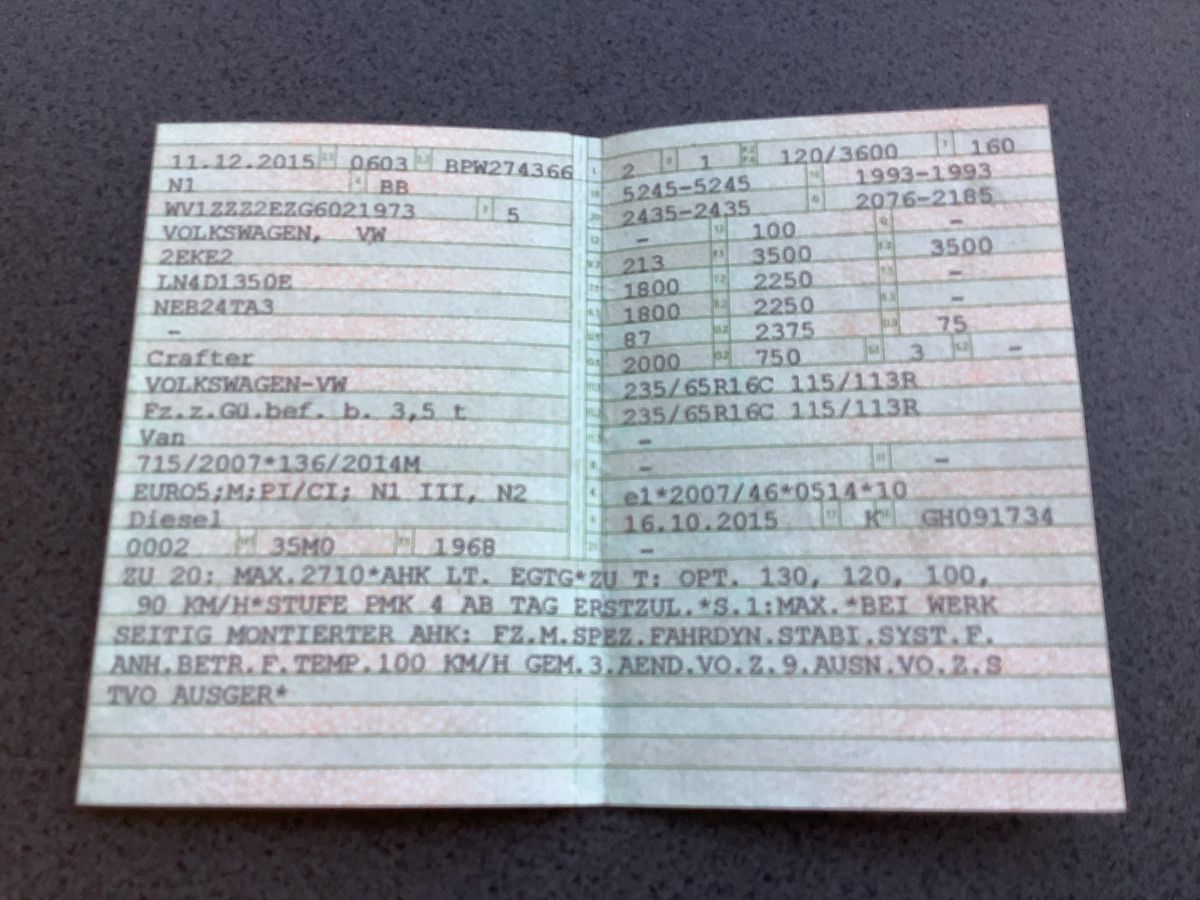 11.12.2015 0603 BPW274366
N1 BB
WV1ZZZ2EZG6021973 5
VOLKSWAGEN, VW
2EKE2
LN4D1350E
NEB24TA3
-
Crafter
VOLKSWAGEN-VW
Fz.z.Gü.bef. b. 3,5 t
Van
715/2007*136/2014M
EURO5;M;PI/CI; N1 III, N2
Diesel
0002 35M0 1968
2 1 120/3600 160
5245-5245 1993-1993
2435-2435 2076-2185
- 100 -
213 3500 3500
1800 2250 -
1800 2250 -
87 2375 75
2000 750 3 -
235/65R16C 115/113R
235/65R16C 115/113R
-
- -
e1*2007/46*0514*10
16.10.2015 K GH091734
-
ZU 20: MAX.2710*AHK LT. EGTG*ZU T: OPT. 130, 120, 100,
90 KM/H*STUFE PMK 4 AB TAG ERSTZUL.*S.1:MAX.*BEI WERK
SEITIG MONTIERTER AHK: FZ.M.SPEZ.FAHRDYN.STABI.SYST.F.
ANH.BETR.F.TEMP.100 KM/H GEM.3.AEND.VO.Z.9.AUSN.VO.Z.S
TVO AUSGER*